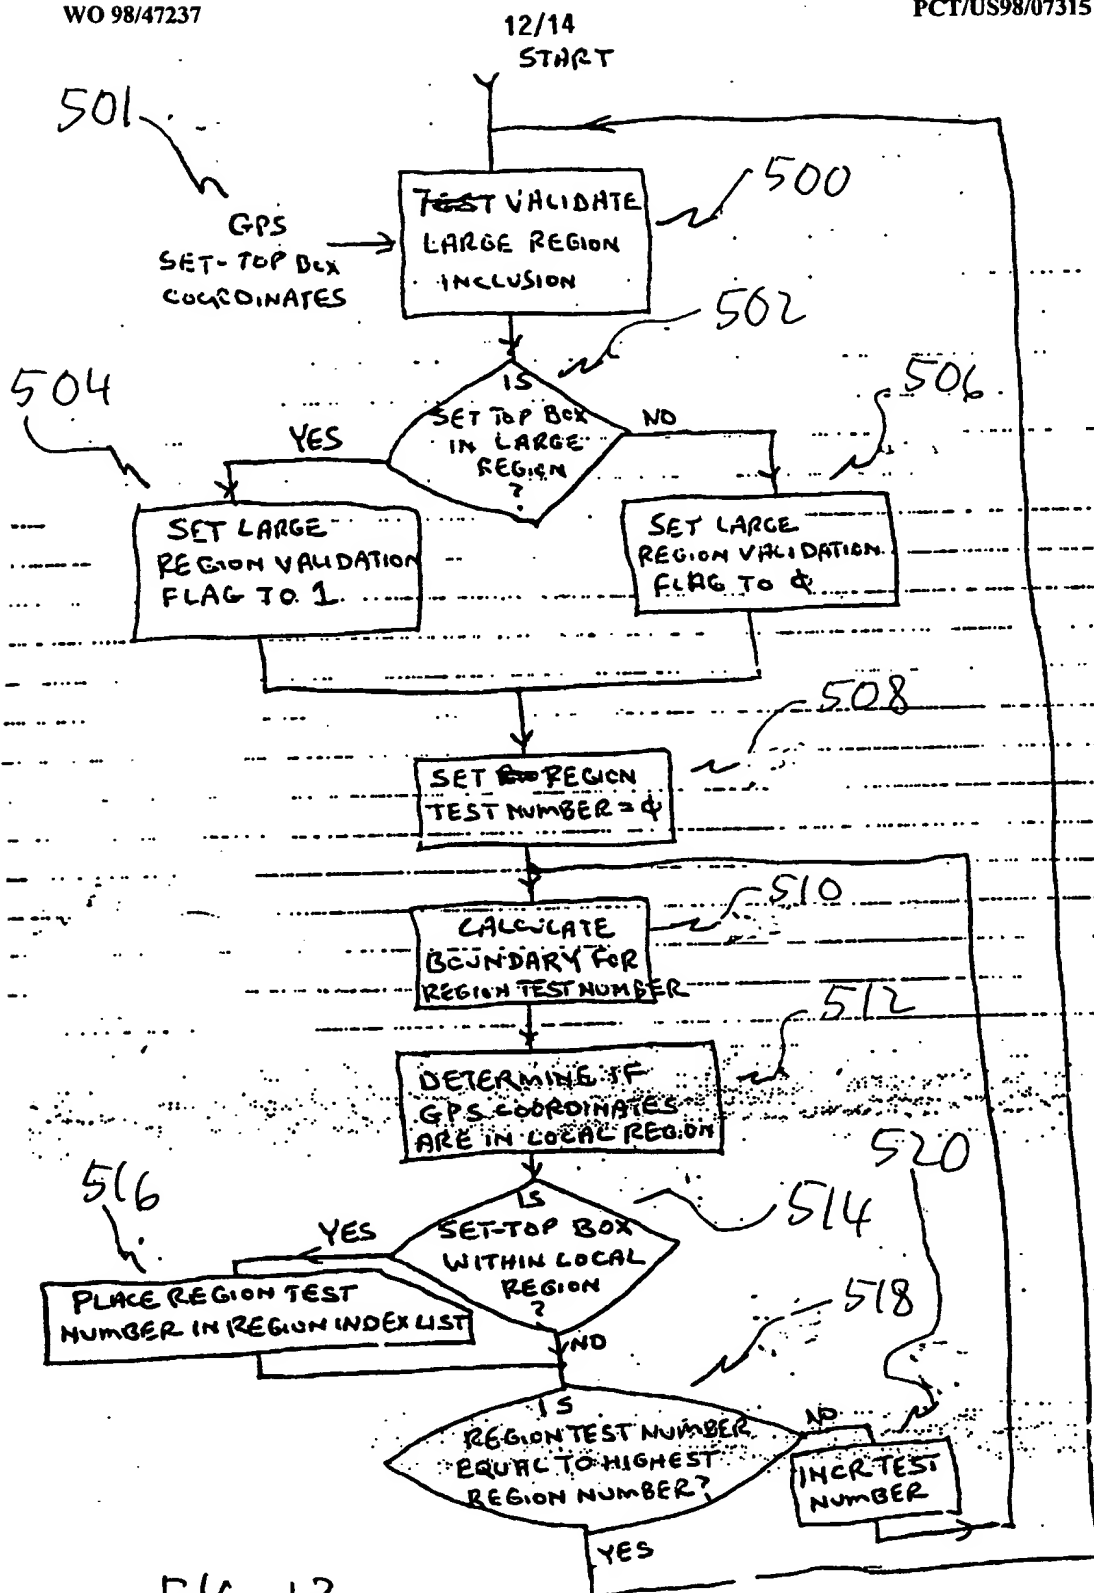 WO 98/47237
PCT/US98/07315
12/14
START
501
500
TEST VALIDATE
LARGE REGION
INCLUSION
GPS
SET-TOP BOX
COORDINATES
502
504
506
IS
SET TOP BOX
IN LARGE
REGION
?
YES
NO
SET LARGE
REGION VALIDATION
FLAG TO 1
SET LARGE
REGION VALIDATION
FLAG TO 0
508
SET REGION
TEST NUMBER = 0
510
CALCULATE
BOUNDARY FOR
REGION TEST NUMBER
512
DETERMINE IF
GPS COORDINATES
ARE IN LOCAL REGION
520
516
514
IS
SET-TOP BOX
WITHIN LOCAL
REGION
?
YES
PLACE REGION TEST
NUMBER IN REGION INDEX LIST
518
NO
IS
REGION TEST NUMBER
EQUAL TO HIGHEST
REGION NUMBER?
NO
INCR TEST
NUMBER
YES